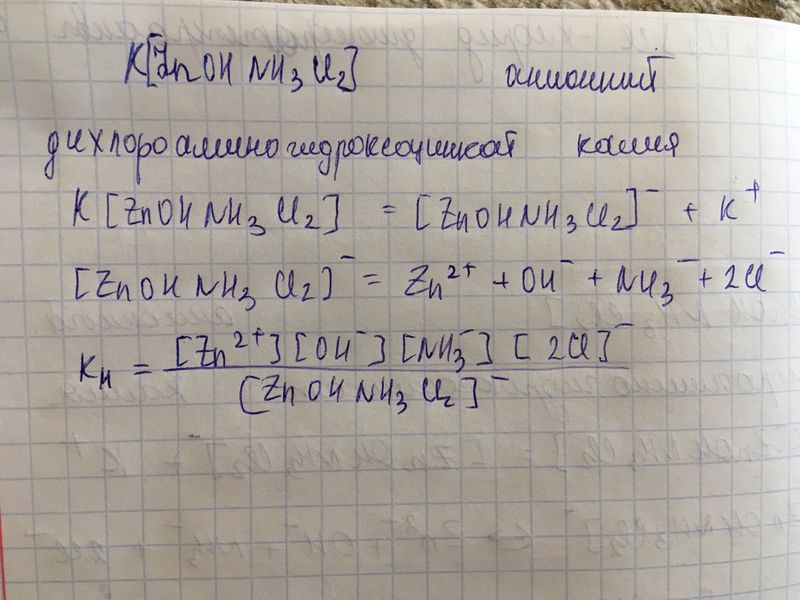 K[ZnOH NH₃ Cl₂] анионний
дихлороаминогидроксоцинкат калия
K [ZnOH NH₃ Cl₂] = [ZnOHNH₃Cl₂]⁻ + K⁺
[ZnOH NH₃ Cl₂]⁻ = Zn²⁺ + OH⁻ + NH₃⁻ + 2Cl⁻
Kн = [Zn²⁺][OH⁻][NH₃⁻][2Cl]⁻
[ZnOHNH₃Cl₂]⁻